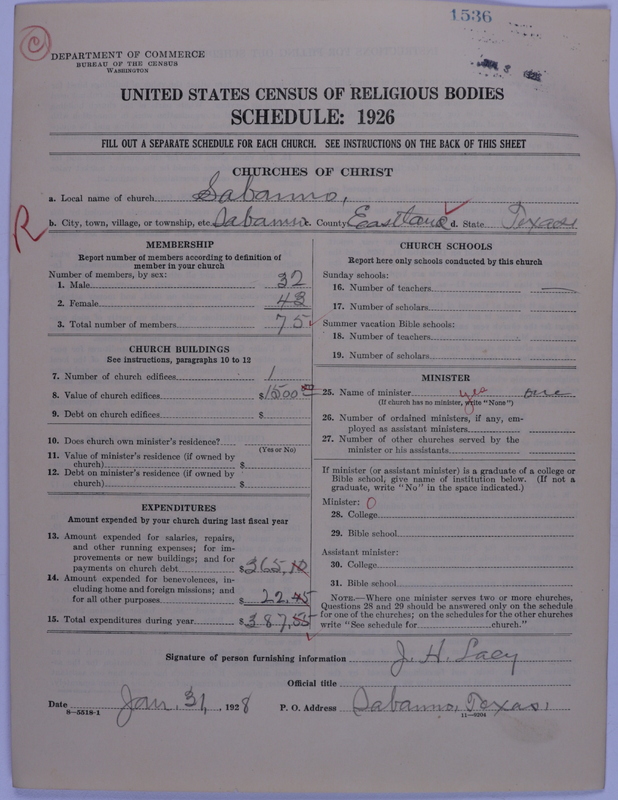 1536
C
DEPARTMENT OF COMMERCE
BUREAU OF THE CENSUS
WASHINGTON
UNITED STATES CENSUS OF RELIGIOUS BODIES
SCHEDULE: 1926
FILL OUT A SEPARATE SCHEDULE FOR EACH CHURCH. SEE INSTRUCTIONS ON THE BACK OF THIS SHEET
CHURCHES OF CHRIST
a. Local name of church Sabanno,
R
b. City, town, village, or township, etc. Sabanno c. County Eastland d. State Texas
MEMBERSHIP
Report number of members according to definition of
member in your church
Number of members, by sex:
1. Male 32
2. Female 43
3. Total number of members 75
CHURCH BUILDINGS
See instructions, paragraphs 10 to 12
7. Number of church edifices 1
8. Value of church edifices $1500
9. Debt on church edifices $
10. Does church own minister's residence?
(Yes or No)
11. Value of minister's residence (if owned by
church) $
12. Debt on minister's residence (if owned by
church) $
EXPENDITURES
Amount expended by your church during last fiscal year
13. Amount expended for salaries, repairs,
and other running expenses; for im-
provements or new buildings; and for
payments on church debt $365.10
14. Amount expended for benevolences, in-
cluding home and foreign missions; and
for all other purposes $22.45
15. Total expenditures during year $387.55
CHURCH SCHOOLS
Report here only schools conducted by this church
Sunday schools:
16. Number of teachers
17. Number of scholars
Summer vacation Bible schools:
18. Number of teachers
19. Number of scholars
MINISTER
25. Name of minister yes one
(If church has no minister, write "None")
26. Number of ordained ministers, if any, em-
ployed as assistant ministers
27. Number of other churches served by the
minister or his assistants
If minister (or assistant minister) is a graduate of a college or
Bible school, give name of institution below. (If not a
graduate, write "No" in the space indicated.)
Minister: 0
28. College
29. Bible school
Assistant minister:
30. College
31. Bible school
NOTE.—Where one minister serves two or more churches,
Questions 28 and 29 should be answered only on the schedule
for one of the churches; on the schedules for the other churches
write "See schedule for church."
Signature of person furnishing information J. H. Lacy
Official title
Date Jan. 31, 1928 P. O. Address Sabanno, Texas.
8—5518-1 11—9204